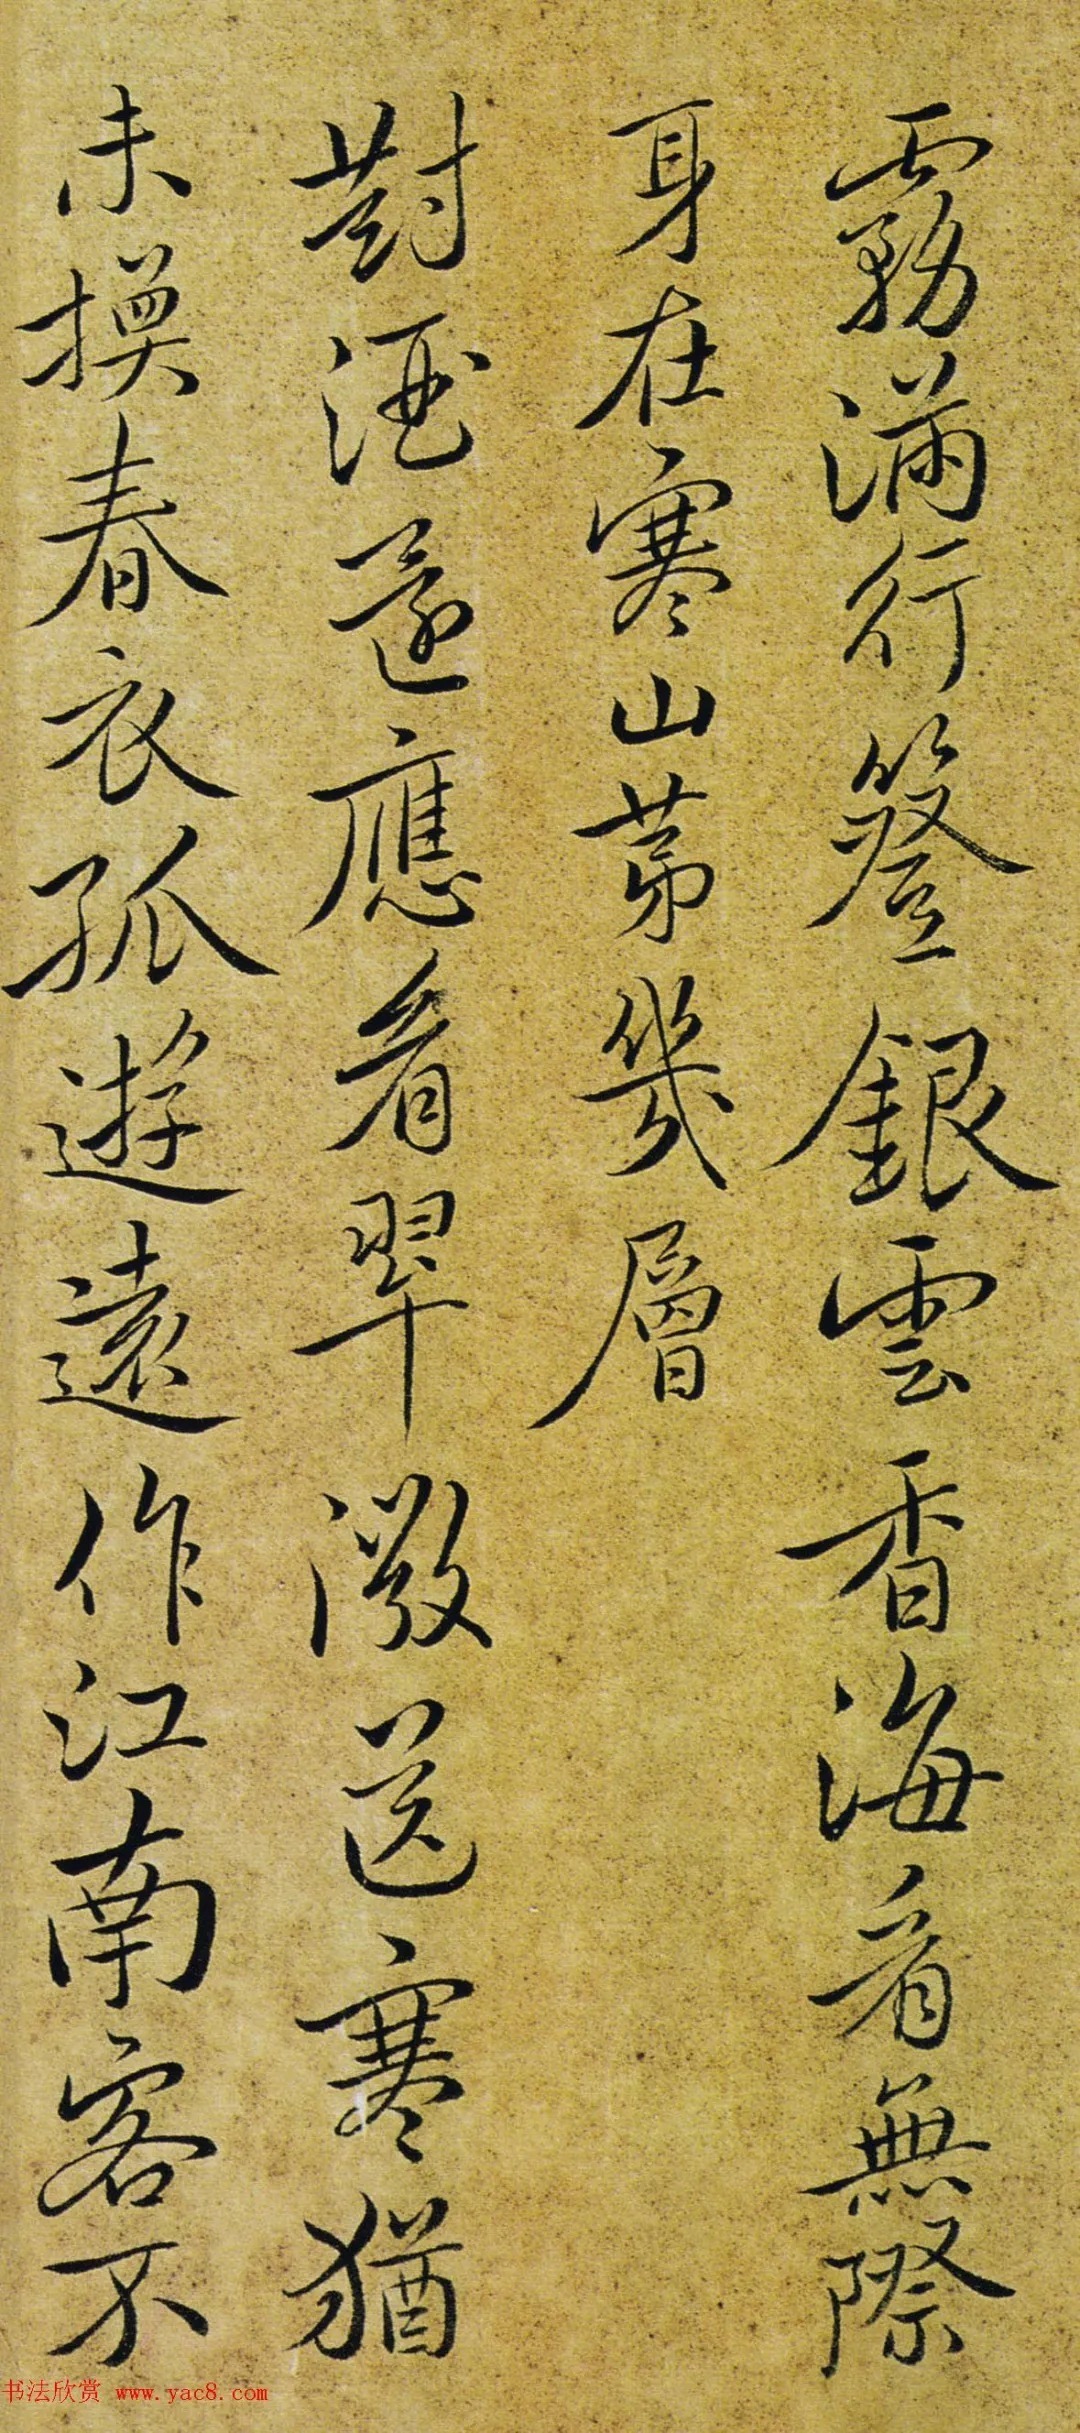 霧滿行簦銀雲香海看無際
身在寒山第幾層
對酒還應看翠瀲送寒猶
未換春衣孤遊遠作江南客不
书法欣赏 www.yac8.com